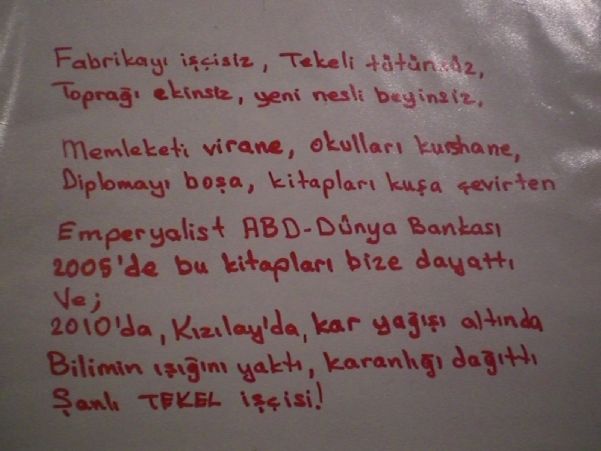 Fabrikayı işçisiz, Tekeli tütünsüz,
Toprağı ekinsiz, yeni nesli beyinsiz,
Memleketi virane, okulları kurshane,
Diplomayı boşa, kitapları kuşa çevirten
Emperyalist ABD-Dünya Bankası
2005'de bu kitapları bize dayattı
Ve;
2010'da, Kızılay'da, kar yağışı altında
Bilimin ışığını yaktı, karanlığı dağıttı
Şanlı TEKEL işçisi!